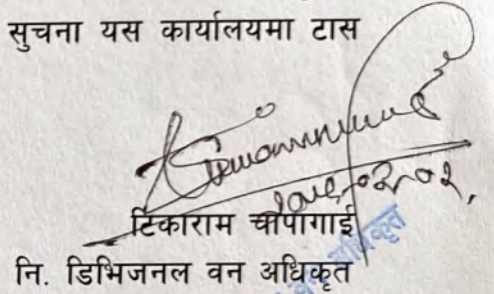 सुचना यस कार्यालयमा टास
टिकाराम चौपागाई
नि. डिभिजनल वन अधिकृत